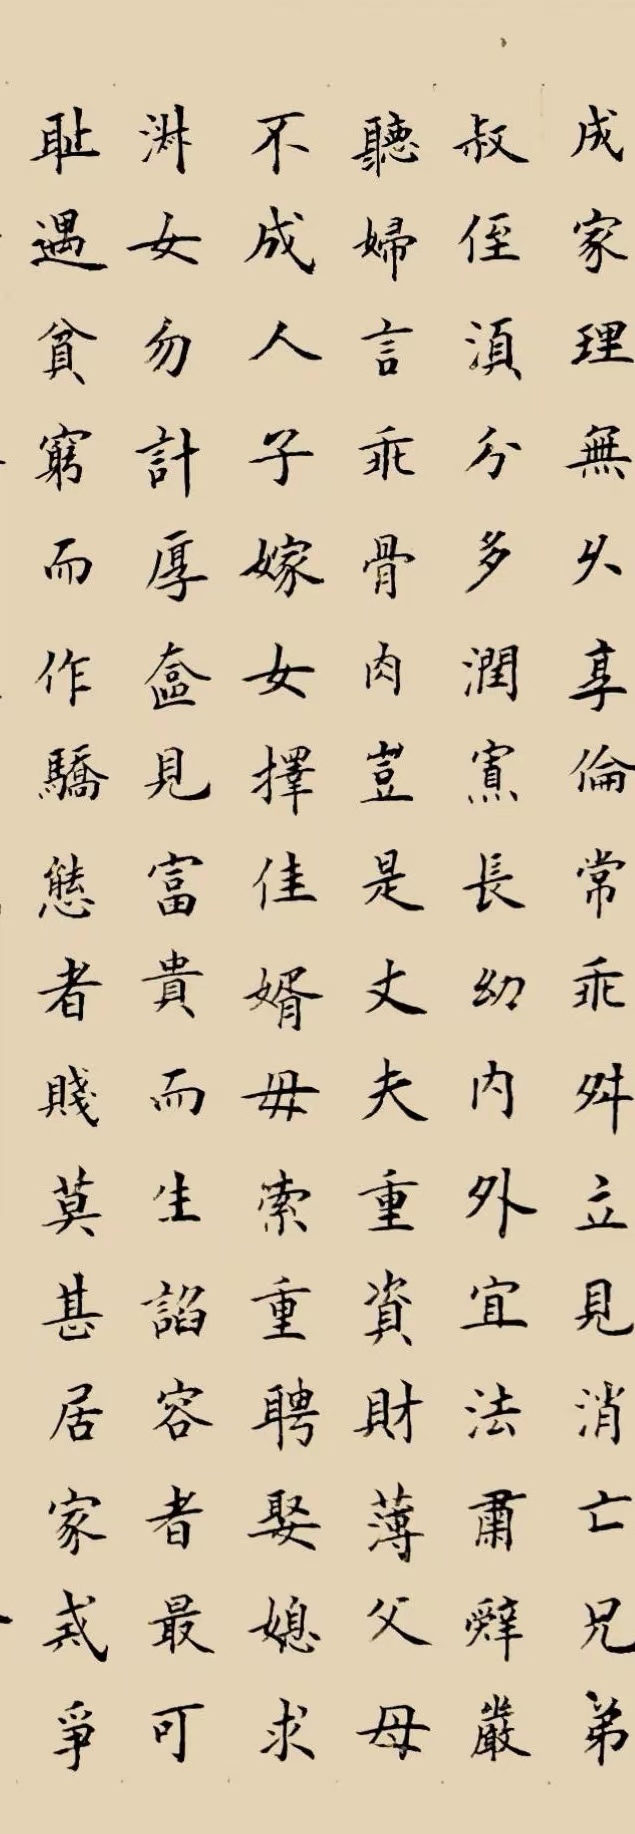 成家理無久享倫常乖舛立見消亡兄弟
叔侄須分多潤寡長幼內外宜法肅辭嚴
聽婦言乖骨肉豈是丈夫重資財薄父母
不成人子嫁女擇佳婿毋索重聘娶媳求
淑女勿計厚奩見富貴而生諂容者最可
恥遇貧窮而作驕態者賤莫甚居家戒爭